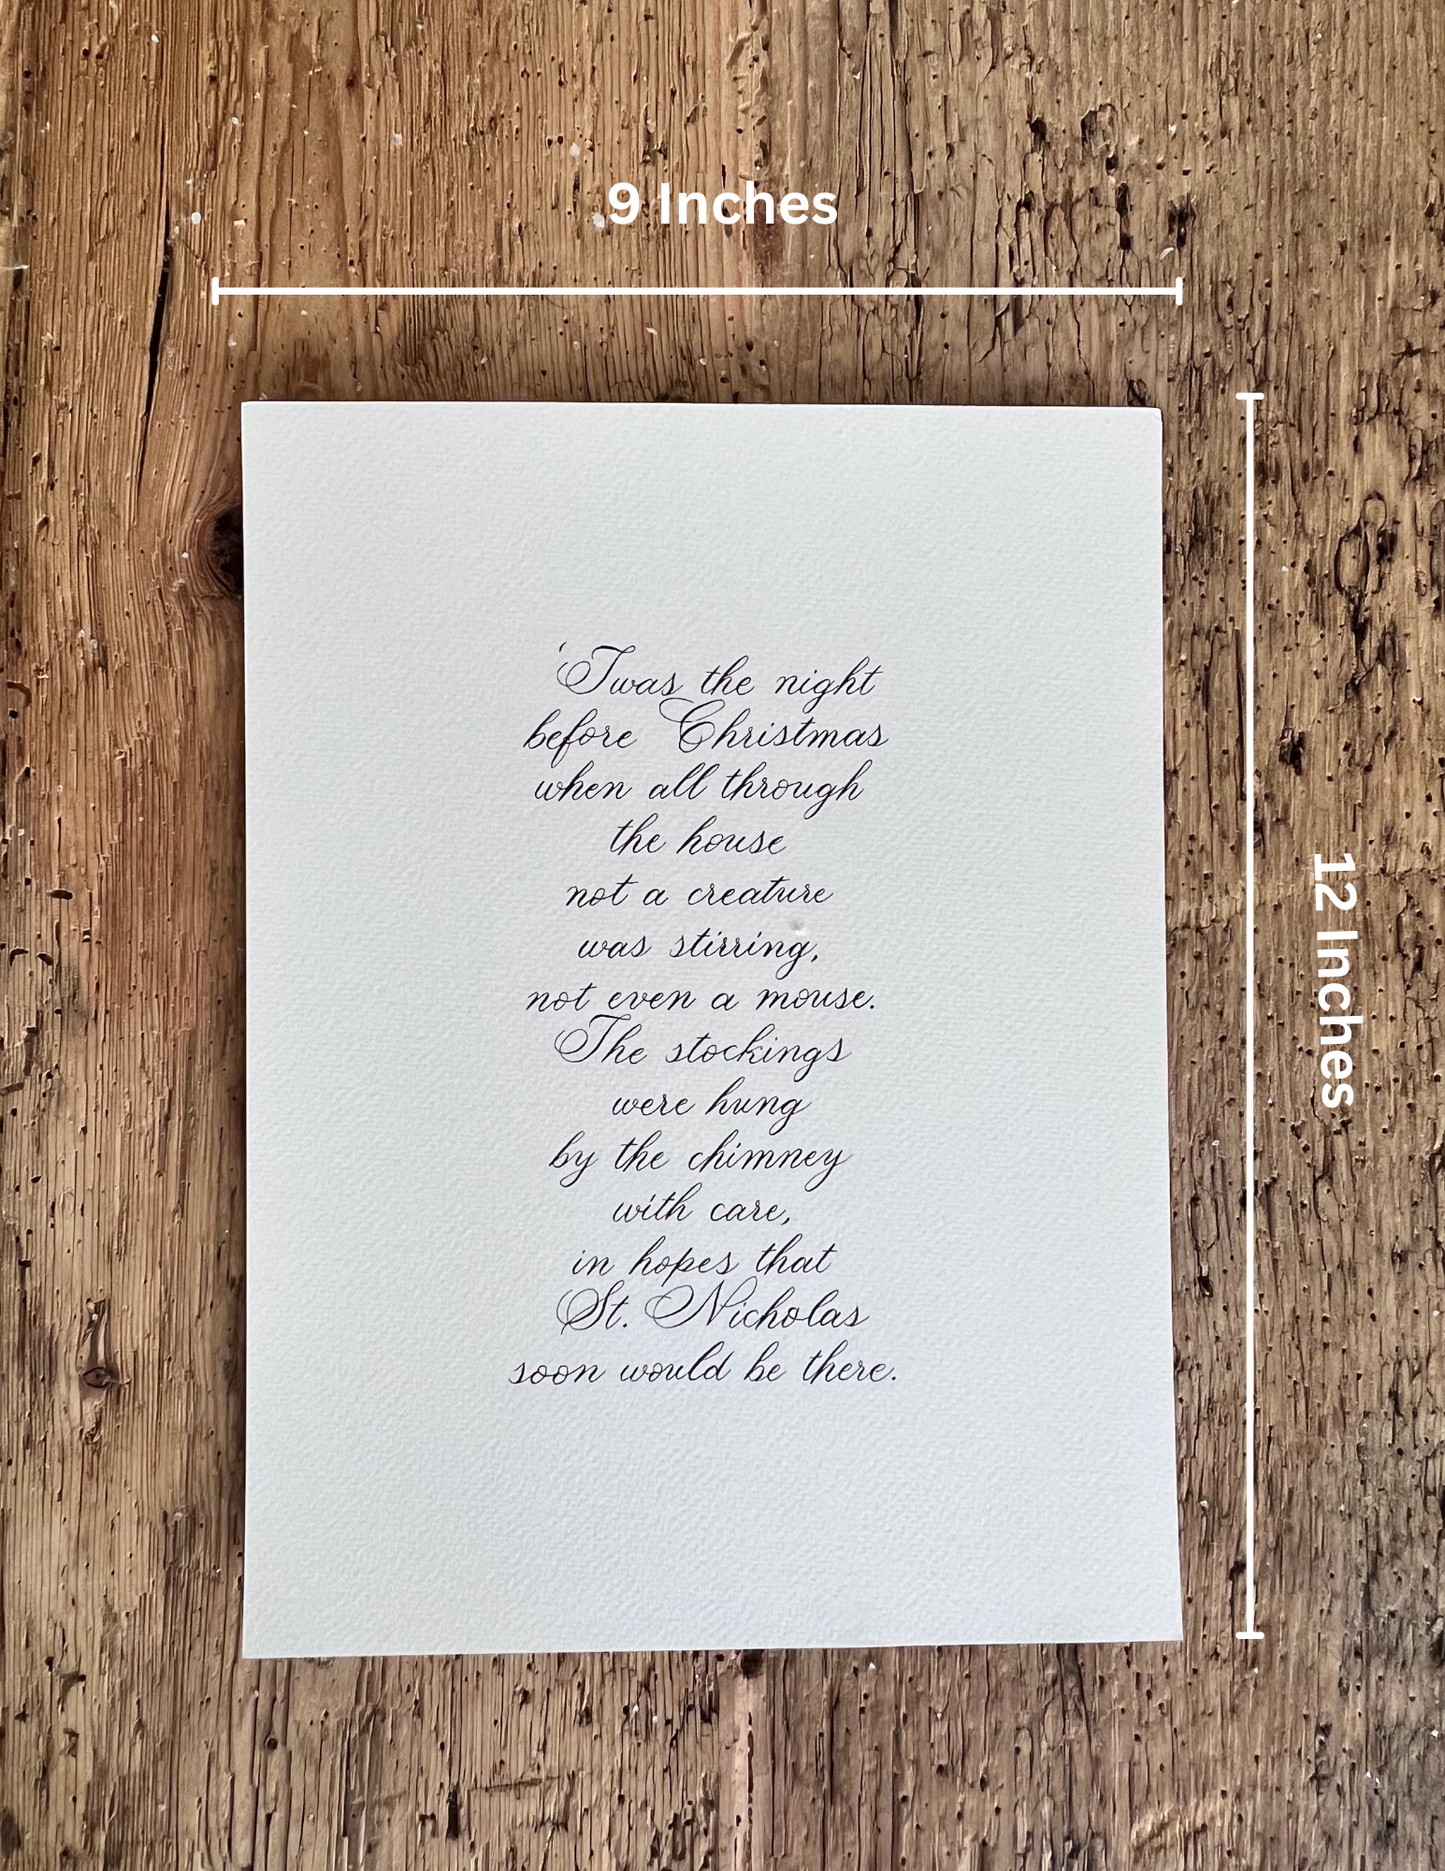 9 Inches
'Twas the night
before Christmas
when all through
the house
not a creature
was stirring,
not even a mouse.
The stockings
were hung
by the chimney
with care,
in hopes that
St. Nicholas
soon would be there.
12 Inches